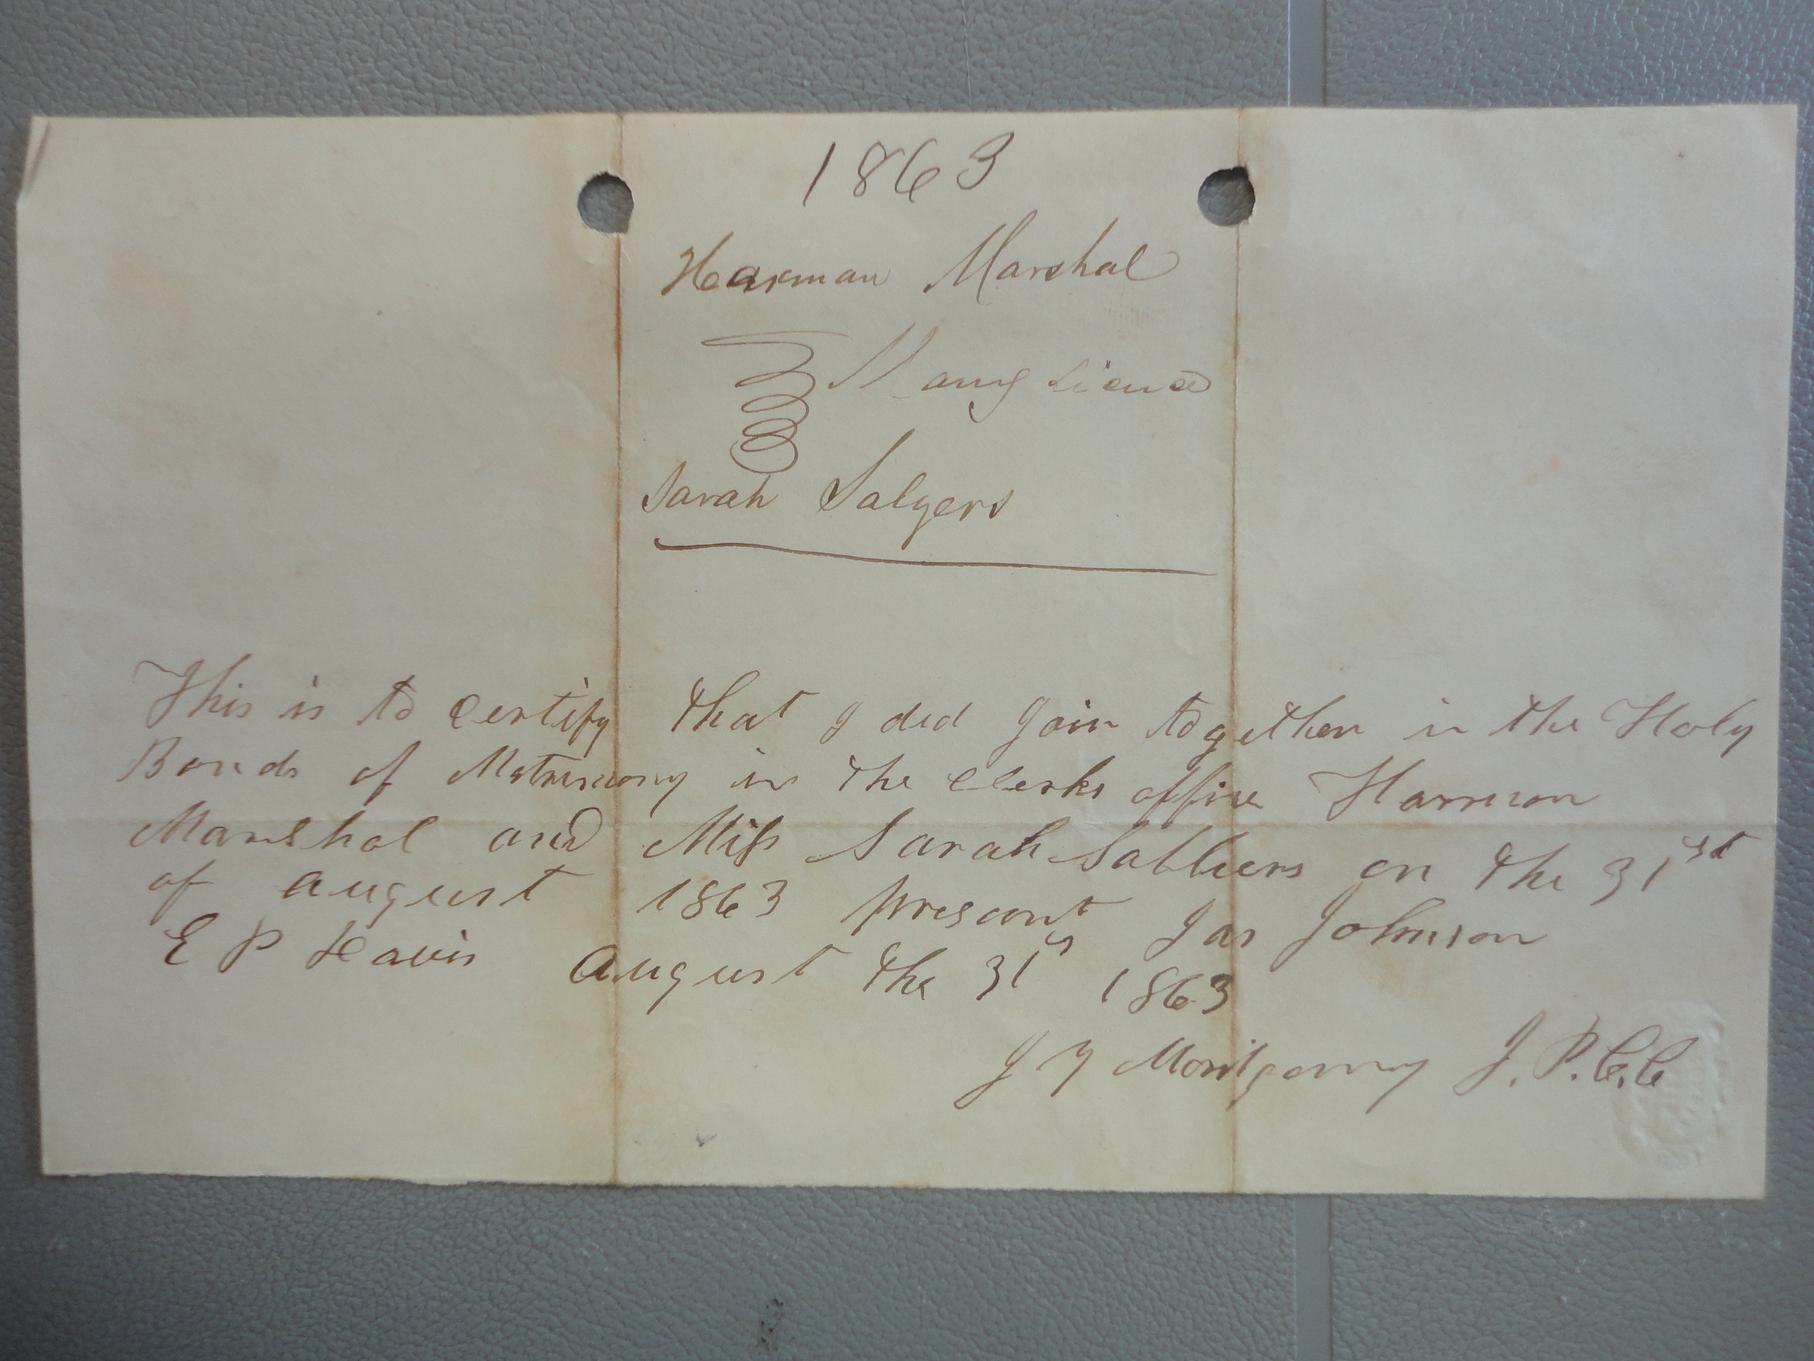 1863
Harman Marshal
Marrg Licence
Sarah Salyers
This is to certify that I did Join together in the Holy
Bonds of Matrimony in the Clerks office Harmon
Marshal and Miss Sarah Salliers on the 31st
of August 1863 present Jas Johnson
E P Davis August the 31st 1863
J Y Montgomry J.P.C.C